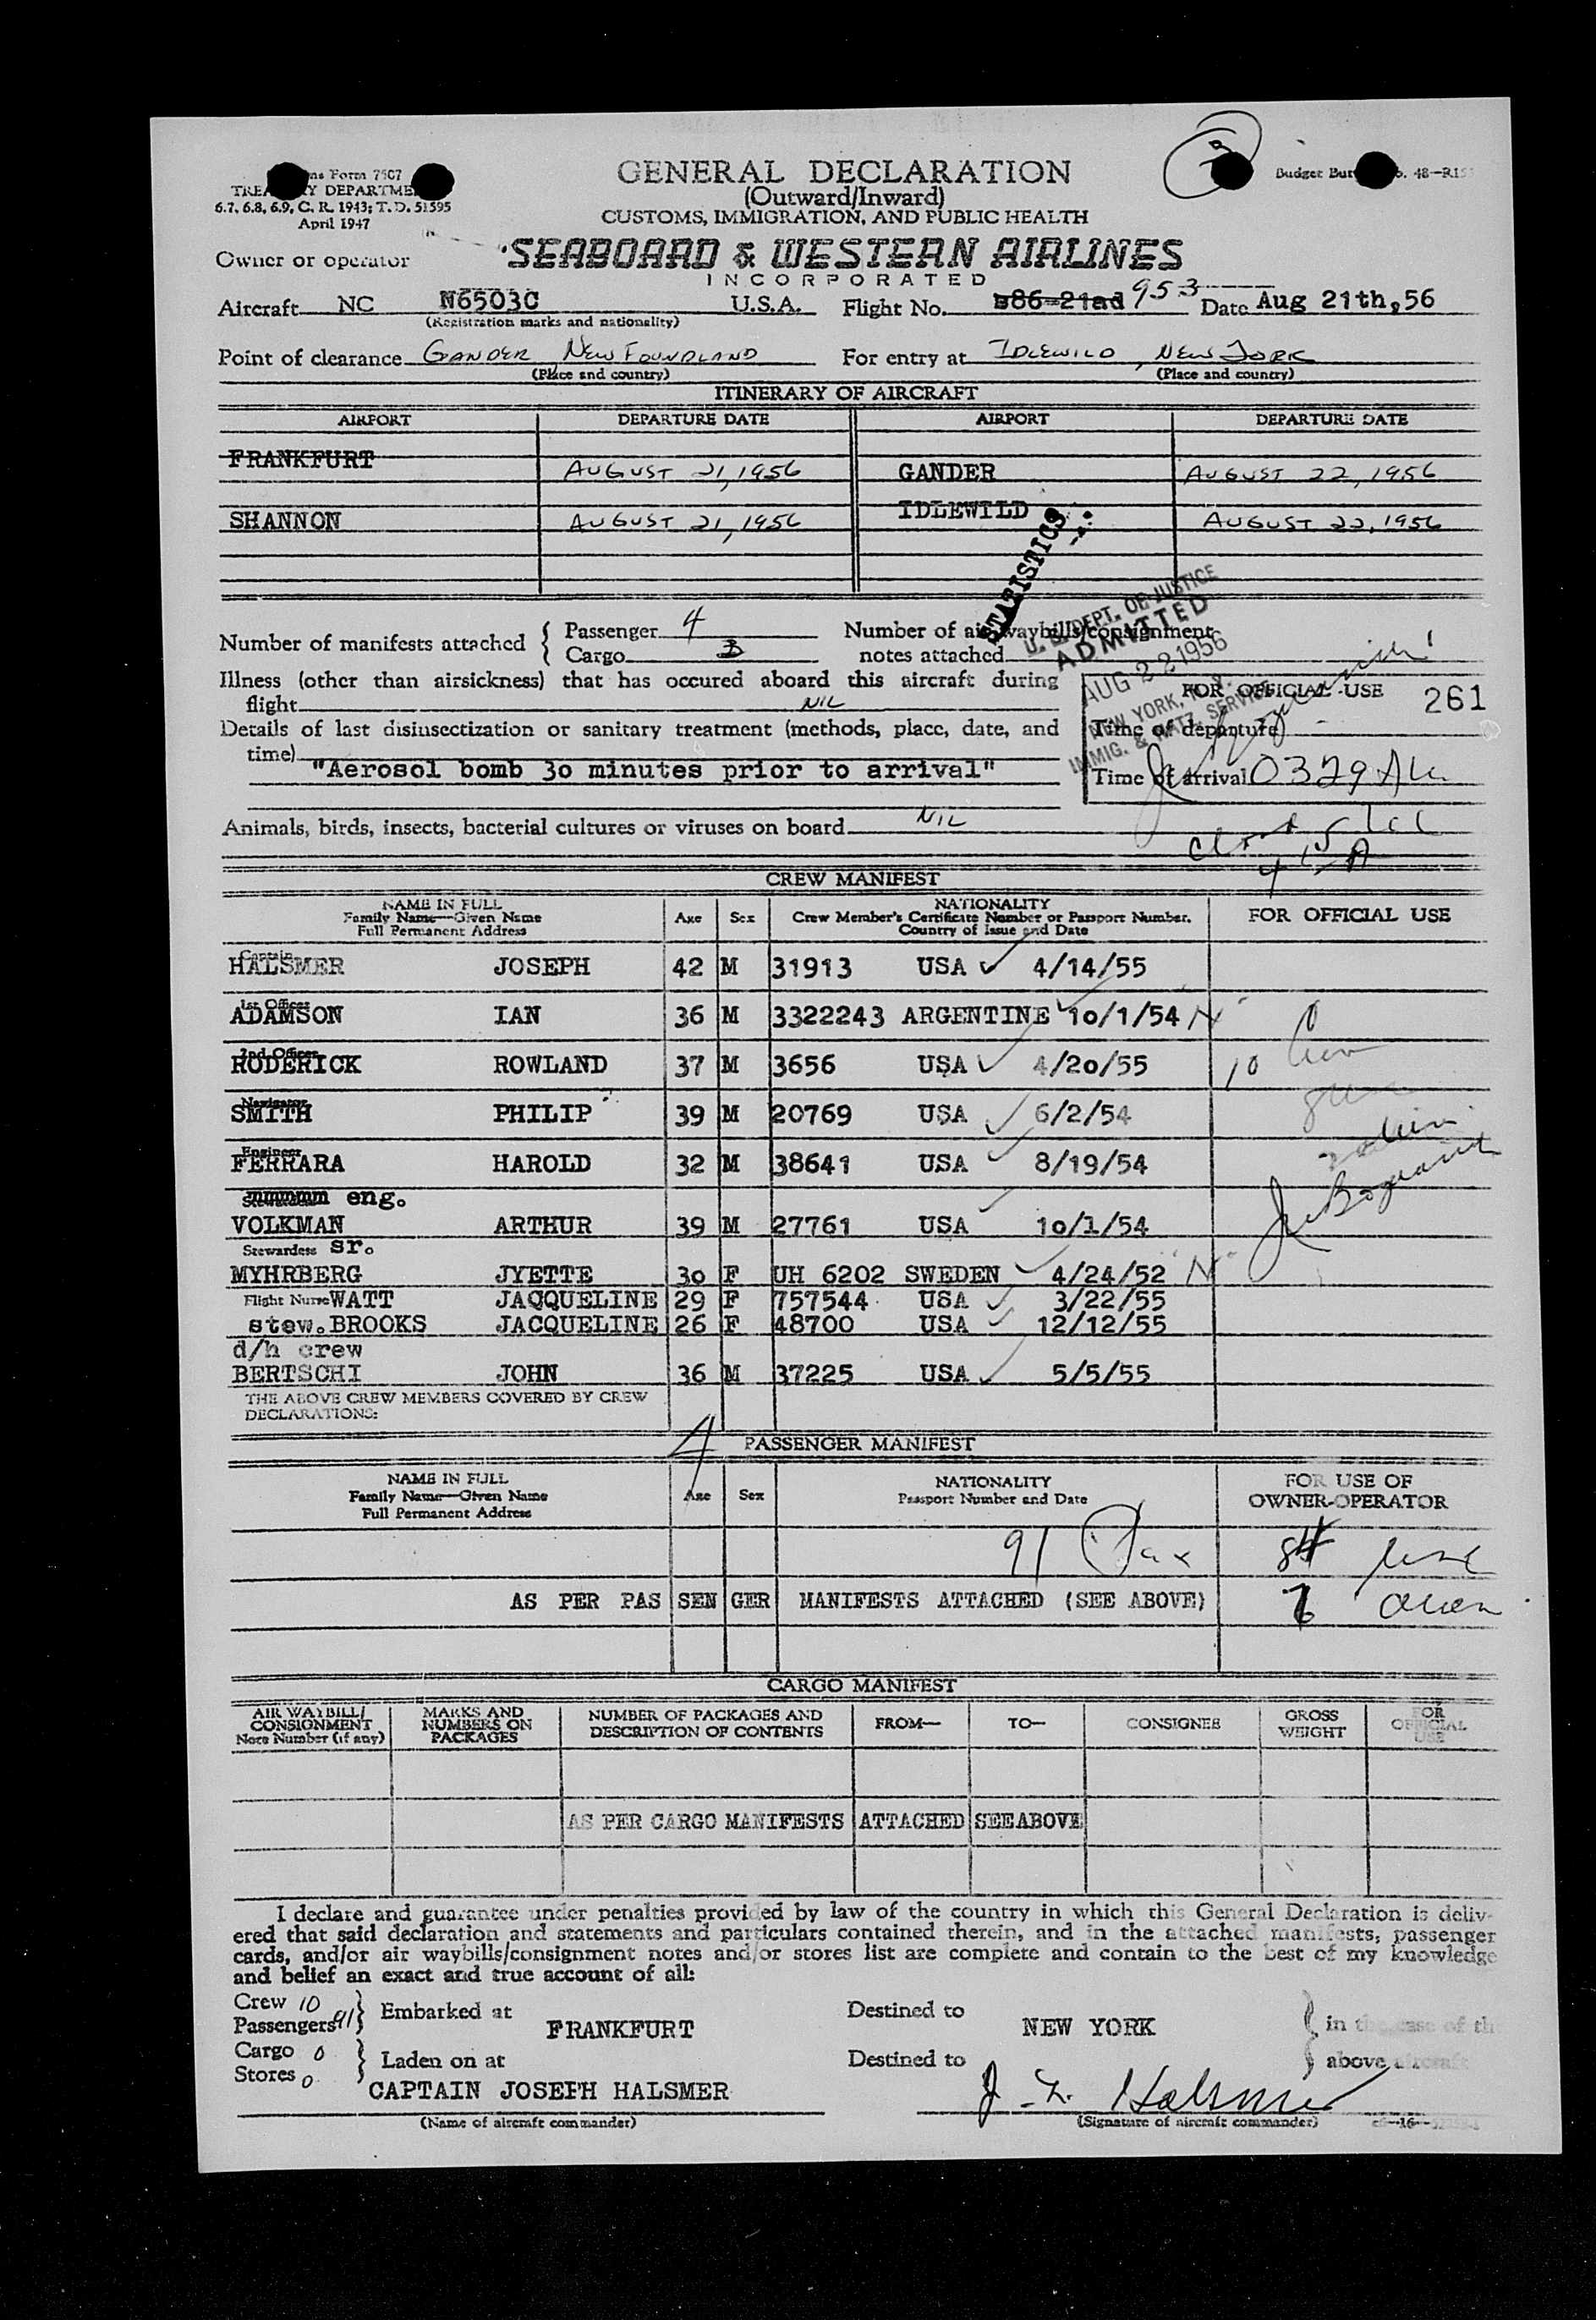 GENERAL DECLARATION
(Outward/Inward)
CUSTOMS, IMMIGRATION, AND PUBLIC HEALTH
Form 7507
6.7, 6.8, 6.9, C. R. 1943; T. D. 51595
April 1947
Owner or operator SEABOARD & WESTERN AIRLINES
INCORPORATED
Aircraft NC N6503C U.S.A. Flight No. s86-21ad 953 Date Aug 21th,56
(Registration marks and nationality)
Point of clearance GANDER NEWFOUNDLAND For entry at IDLEWILD, NEW YORK
(Place and country) (Place and country)
ITINERARY OF AIRCRAFT
AIRPORT DEPARTURE DATE AIRPORT DEPARTURE DATE
FRANKFURT AUGUST 21, 1956 GANDER AUGUST 22, 1956
SHANNON AUGUST 21, 1956 IDLEWILD AUGUST 22, 1956
STATISTICS
Number of manifests attached { Passenger 4 Number of air waybills/consignment
Cargo 3 notes attached
U. S. DEPT. OF JUSTICE
ADMITTED
AUG 22 1956
NEW YORK, N. Y.
IMMIG. & NATZ. SERVICE
Illness (other than airsickness) that has occured aboard this aircraft during
flight NIL
FOR OFFICIAL USE 261
Details of last disinsectization or sanitary treatment (methods, place, date, and
time) "Aerosol bomb 30 minutes prior to arrival"
Time of departure
Time of arrival 0329 A
Animals, birds, insects, bacterial cultures or viruses on board NIL
415 A
CREW MANIFEST
NAME IN FULL
Family Name—Given Name
Full Permanent Address
Age Sex
NATIONALITY
Crew Member's Certificate Number or Passport Number.
Country of Issue and Date
FOR OFFICIAL USE
Captain
HALSMER JOSEPH 42 M 31913 USA 4/14/55
1st Officer
ADAMSON IAN 36 M 3322243 ARGENTINE 10/1/54 N
2nd Officer
RODERICK ROWLAND 37 M 3656 USA 4/20/55 10
Navigator
SMITH PHILIP 39 M 20769 USA 6/2/54
Engineer
FERRARA HAROLD 32 M 38641 USA 8/19/54
eng.
VOLKMAN ARTHUR 39 M 27761 USA 10/1/54
Stewardess sr.
MYHRBERG JYETTE 30 F UH 6202 SWEDEN 4/24/52 "N"
Flight Nurse WATT JACQUELINE 29 F 757544 USA 3/22/55
stew. BROOKS JACQUELINE 26 F 48700 USA 12/12/55
d/h crew
BERTSCHI JOHN 36 M 37225 USA 5/5/55
THE ABOVE CREW MEMBERS COVERED BY CREW
DECLARATIONS:
4 PASSENGER MANIFEST
NAME IN FULL
Family Name—Given Name
Full Permanent Address
Age Sex
NATIONALITY
Passport Number and Date
FOR USE OF
OWNER-OPERATOR
91 Pax
AS PER PAS SEN GER MANIFESTS ATTACHED (SEE ABOVE)
CARGO MANIFEST
AIR WAYBILL/
CONSIGNMENT
Note Number (if any)
MARKS AND
NUMBERS ON
PACKAGES
NUMBER OF PACKAGES AND
DESCRIPTION OF CONTENTS
FROM— TO— CONSIGNEE
GROSS
WEIGHT
FOR
OFFICIAL
USE
AS PER CARGO MANIFESTS ATTACHED SEEABOVE
I declare and guarantee under penalties provided by law of the country in which this General Declaration is deliv-
ered that said declaration and statements and particulars contained therein, and in the attached manifests, passenger
cards, and/or air waybills/consignment notes and/or stores list are complete and contain to the best of my knowledge
and belief an exact and true account of all:
Crew 10
Passengers 91 } Embarked at FRANKFURT Destined to NEW YORK } in the case of the
Cargo 0
Stores 0 } Laden on at Destined to } above aircraft
CAPTAIN JOSEPH HALSMER J. F. Halsmer
(Name of aircraft commander) (Signature of aircraft commander)